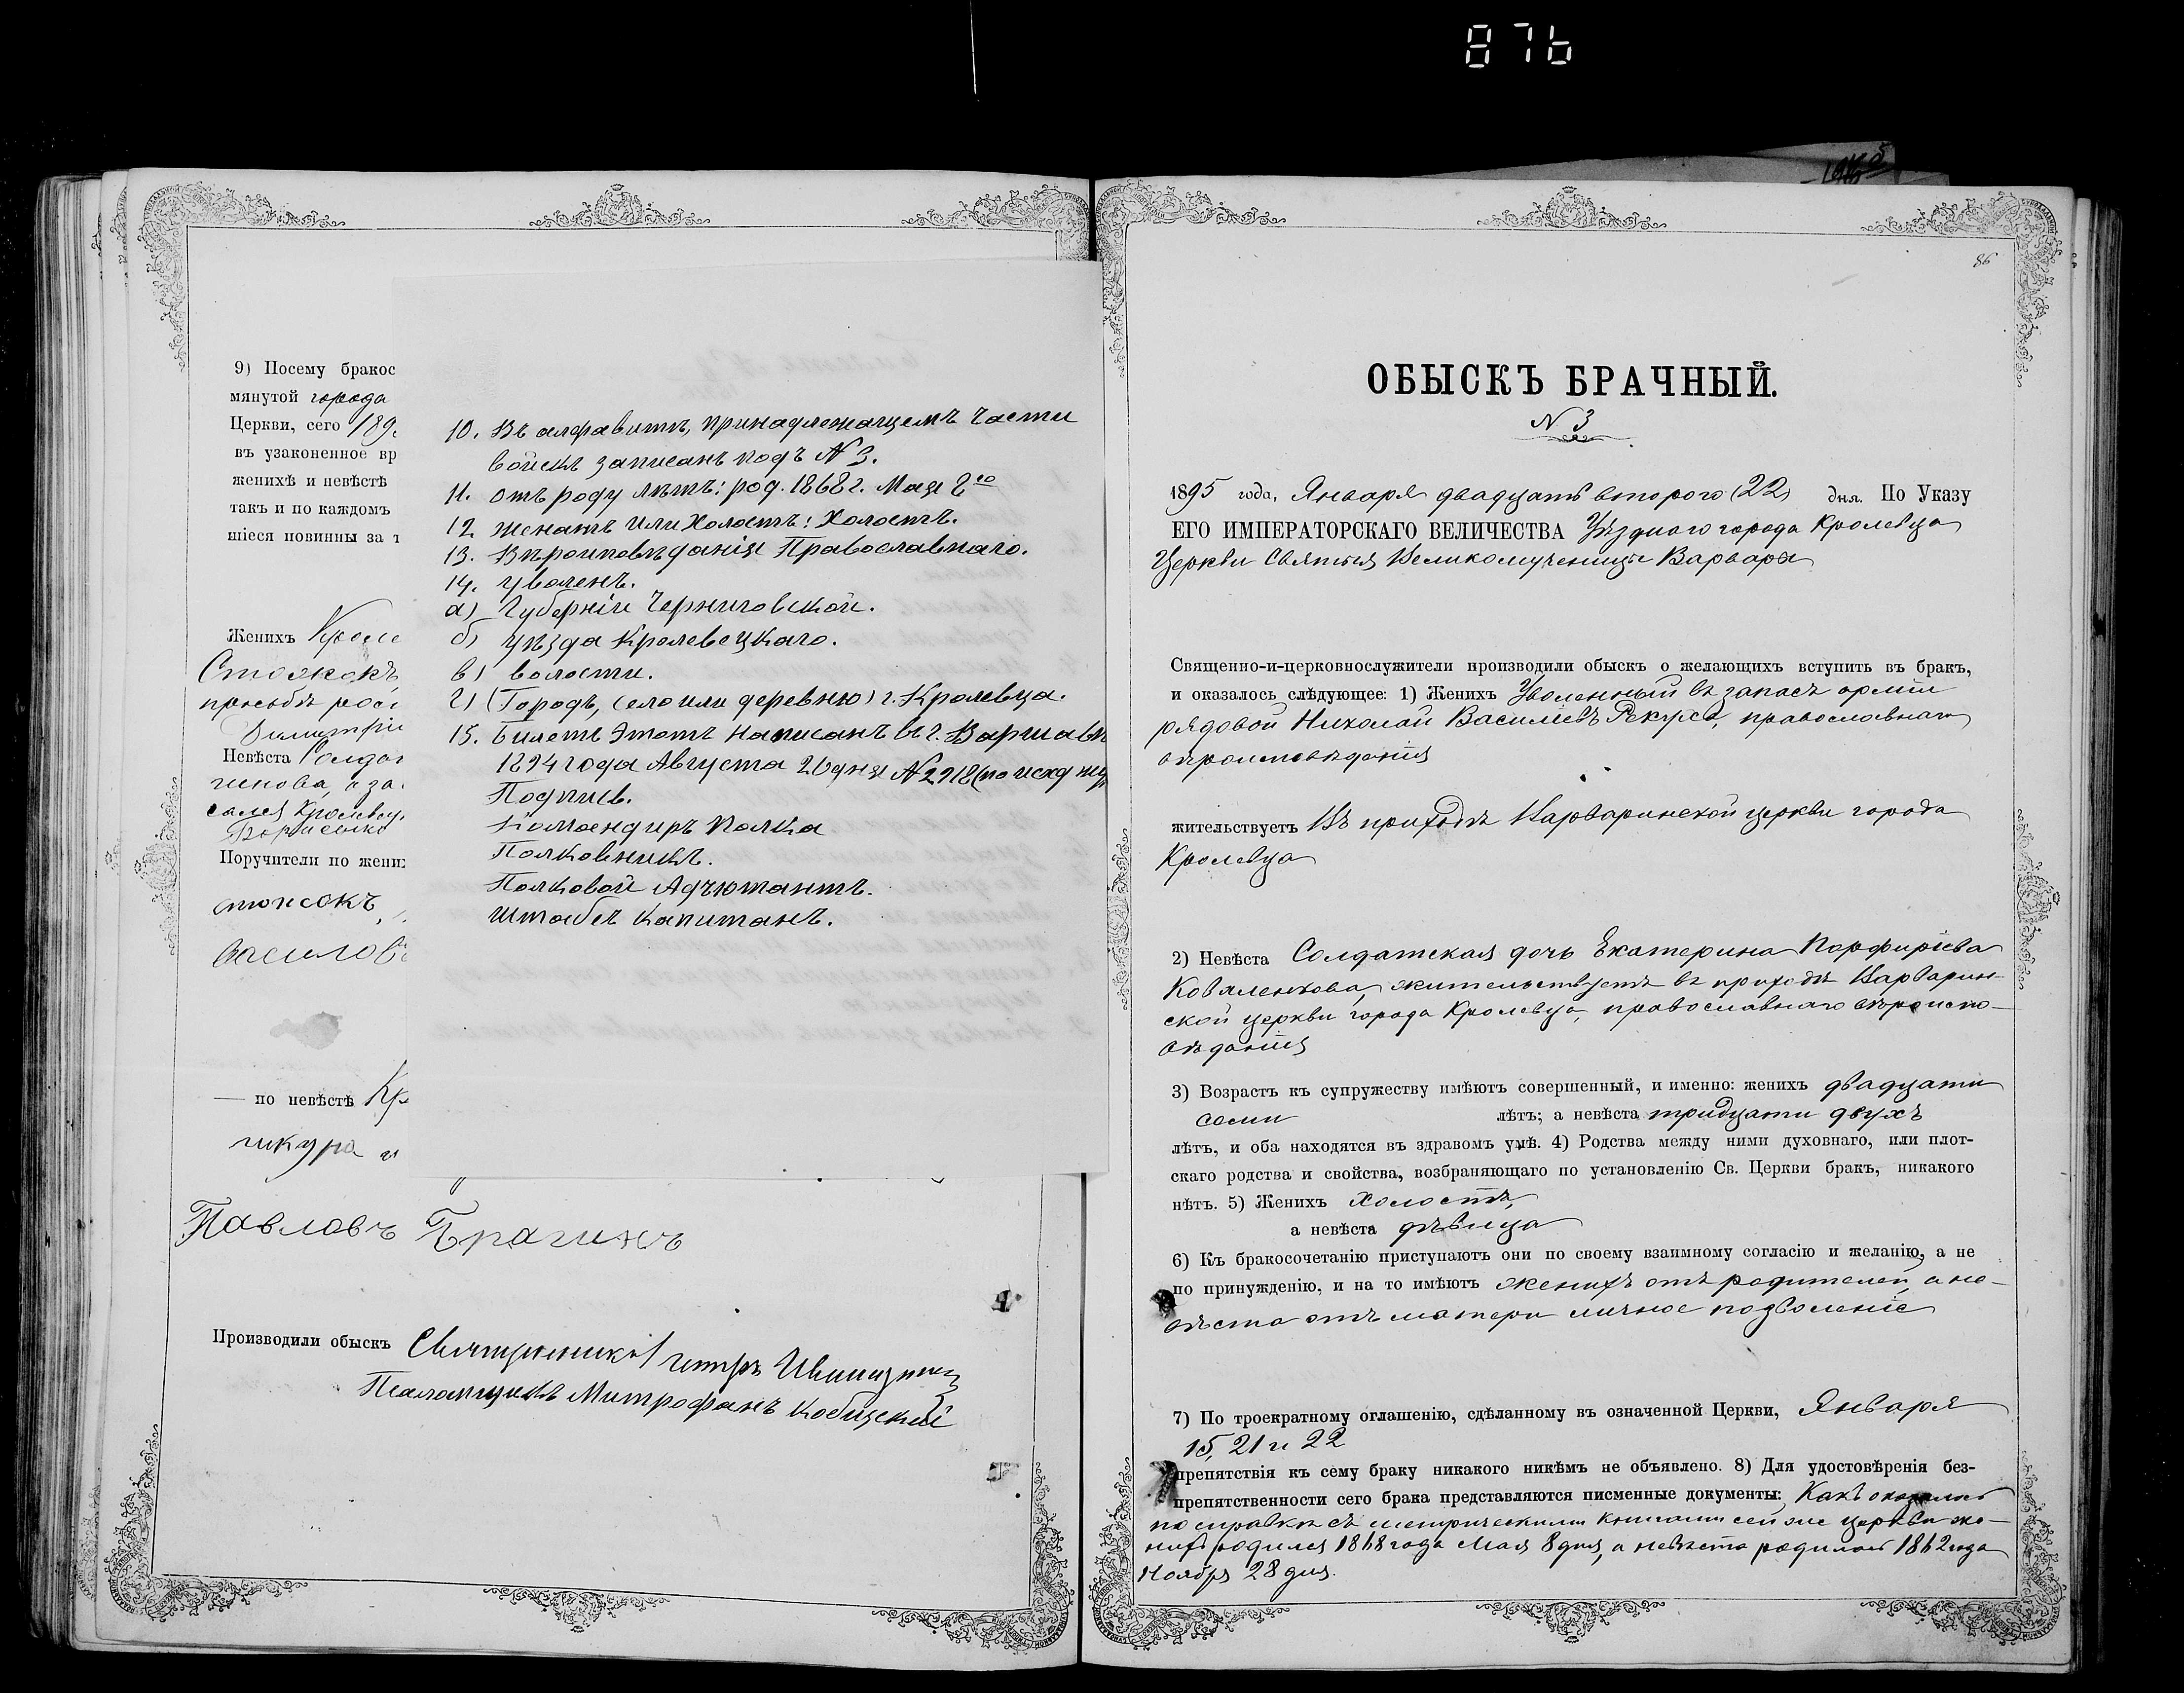 876
9) Посему бракос
мянутой города
Церкви, сего 189
въ узаконенное вр
женихѣ и невѣстѣ
такъ и по каждомъ
шіеся повинны за т
Женихъ Кроле
Стожокъ,
просьбѣ рос
Димитрій
Невѣста Солдат
гинова, а за
Кролевец
Борисенко
Поручители по жених
Василов
— по невѣстѣ Кр
чикура и
Павловъ Брагинъ
Производили обыскъ Священникъ Петръ
Псаломщикъ Митрофанъ Кобицскій
10. Въ алфавитѣ, принадлежащемъ части
войскъ записанъ подъ № 3.
11. отъ роду лѣтъ: род. 1868 г. Мая 8го
12. женатъ или Холостъ: Холостъ.
13. Вѣроисповѣданія Православнаго.
14. уволенъ.
а) Губерніи Черниговской.
б) уѣзда Кролевецкаго.
в) волости.
г) (Городъ, село или деревню) г. Кролевца.
15. Билетъ этотъ написанъ въ г. Варшавѣ
1894 года Августа 26 дня № 2918 (по исход
Подпись.
Командиръ Полка
Полковникъ.
Полковой Адъютантъ.
Штабсъ Капитанъ.
86
ОБЫСКЪ БРАЧНЫЙ.
N 3
1895 года, Января двадцать второго (22) дня. По Указу
ЕГО ИМПЕРАТОРСКАГО ВЕЛИЧЕСТВА Уѣзднаго города Кролевца
Церкви Святыя Великомученицы Варвары
Священно-и-церковнослужители производили обыскъ о желающихъ вступить въ бракъ,
и оказалось слѣдующее: 1) Женихъ Уволенный въ запасъ арміи
рядовой Николай Василіевъ Рекуха, православнаго
вѣроисповѣданія
жительствуетъ Въ приходѣ Варваринской церкви города
Кролевца
2) Невѣста Солдатская дочь Екатерина Порфиріева
Коваленкова, жительствуетъ въ приходѣ Варварин-
ской церкви города Кролевца, православнаго вѣроиспо-
вѣданія
3) Возрастъ къ супружеству имѣютъ совершенный, и именно: женихъ двадцати
семи лѣтъ; а невѣста тридцати двухъ
лѣтъ, и оба находятся въ здравомъ умѣ. 4) Родства между ними духовнаго, или плот-
скаго родства и свойства, возбраняющаго по установленію Св. Церкви бракъ, никакого
нѣтъ. 5) Женихъ холостъ,
а невѣста дѣвица
6) Къ бракосочетанію приступаютъ они по своему взаимному согласію и желанію, а не
по принужденію, и на то имѣютъ женихъ отъ родителей, а не-
вѣста отъ матери личное позволеніе
7) По троекратному оглашенію, сдѣланному въ означенной Церкви, Января
15, 21 и 22
препятствія къ сему браку никакого никѣмъ не объявлено. 8) Для удостовѣренія без-
препятственности сего брака представляются писменные документы: Какъ оказалось
по справкѣ съ метрическими книгами сей же церкви же-
нихъ родился 1868 года Мая 8 дня, а невѣста родилась 1862 года
Ноября 28 дня.